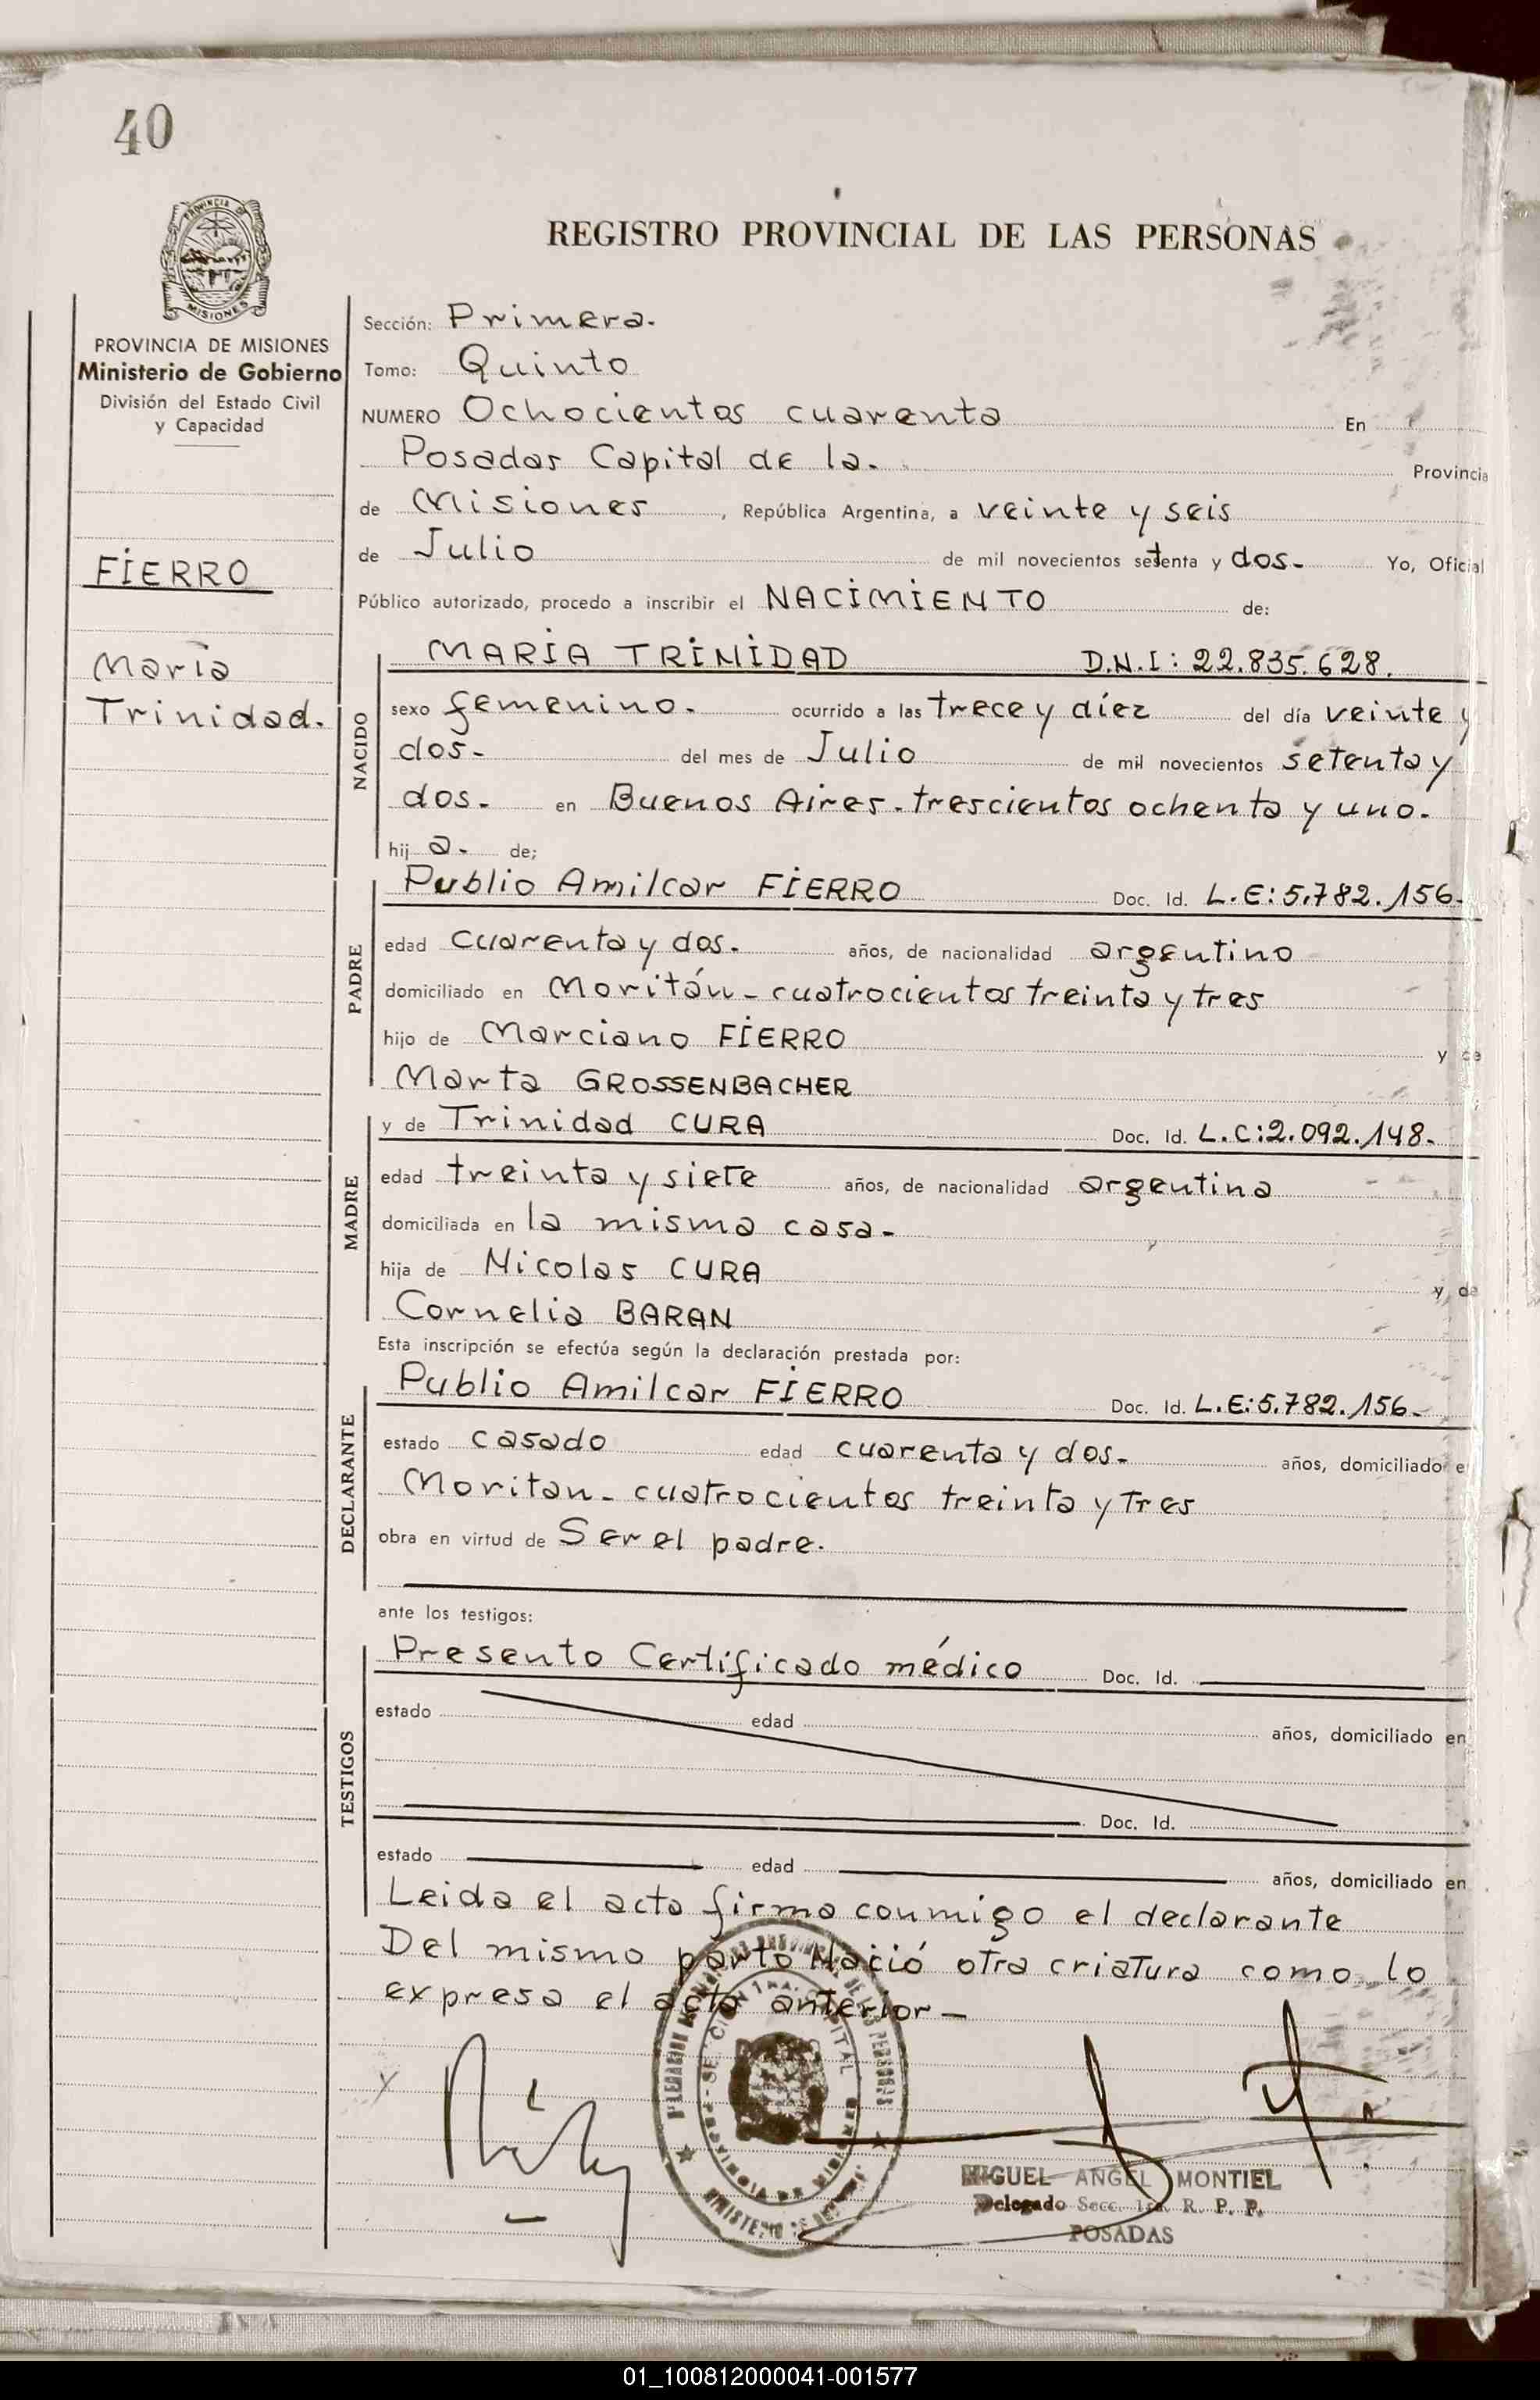 40
PROVINCIA DE
MISIONES
PROVINCIA DE MISIONES
Ministerio de Gobierno
División del Estado Civil
y Capacidad
FIERRO
María
Trinidad.
REGISTRO PROVINCIAL DE LAS PERSONAS
Sección: Primera.
Tomo: Quinto
NUMERO Ochocientos cuarenta En
Posadas Capital de la. Provincia
de Misiones, República Argentina, a veinte y seis
de Julio de mil novecientos setenta y dos. Yo, Oficial
Público autorizado, procedo a inscribir el NACIMIENTO de:
NACIDO
MARIA TRINIDAD D.N.I: 22.835.628.
sexo femenino. ocurrido a las trece y diez del día veinte y
dos- del mes de Julio de mil novecientos setenta y
dos. en Buenos Aires. trescientos ochenta y uno.
hij a. de;
PADRE
Publio Amilcar FIERRO Doc. Id. L.E: 5.782.156.
edad cuarenta y dos. años, de nacionalidad argentino
domiciliado en Moritán - cuatrocientos treinta y tres
hijo de Marciano FIERRO y de
Marta GROSSENBACHER
MADRE
y de Trinidad CURA Doc. Id. L.C: 2.092.148-
edad treinta y siete años, de nacionalidad argentina
domiciliada en la misma casa-
hija de Nicolas CURA y de
Cornelia BARAN
Esta inscripción se efectúa según la declaración prestada por:
DECLARANTE
Publio Amilcar FIERRO Doc. Id. L.E: 5.782.156-
estado casado edad cuarenta y dos- años, domiciliado e
Moritan - cuatrocientos treinta y tres
obra en virtud de Ser el padre.
ante los testigos:
TESTIGOS
Presento Certificado médico Doc. Id.
estado edad años, domiciliado en
Doc. Id.
estado edad años, domiciliado en
Leida el acta firma conmigo el declarante
Del mismo parto Nació otra criatura como lo
expresa el acta anterior-
MIGUEL ANGEL MONTIEL
Delegado Secc. 1ra. R. P. P.
POSADAS
01_100812000041-001577